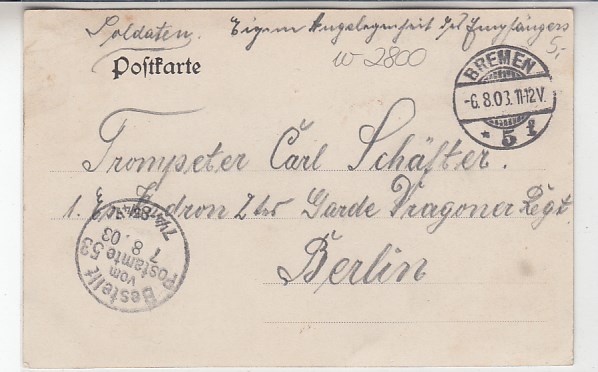 Soldaten. Eigene Angelegenheit des Empfängers
5,-
w 2800
Postkarte
BREMEN
-6.8.03.11-12V.
* 5 f
Trompeter Carl Schäfter.
1. Eskadron 2tes Garde Dragoner Regt.
Berlin
Bestellt
vom
Postamte 53
7 8. 03